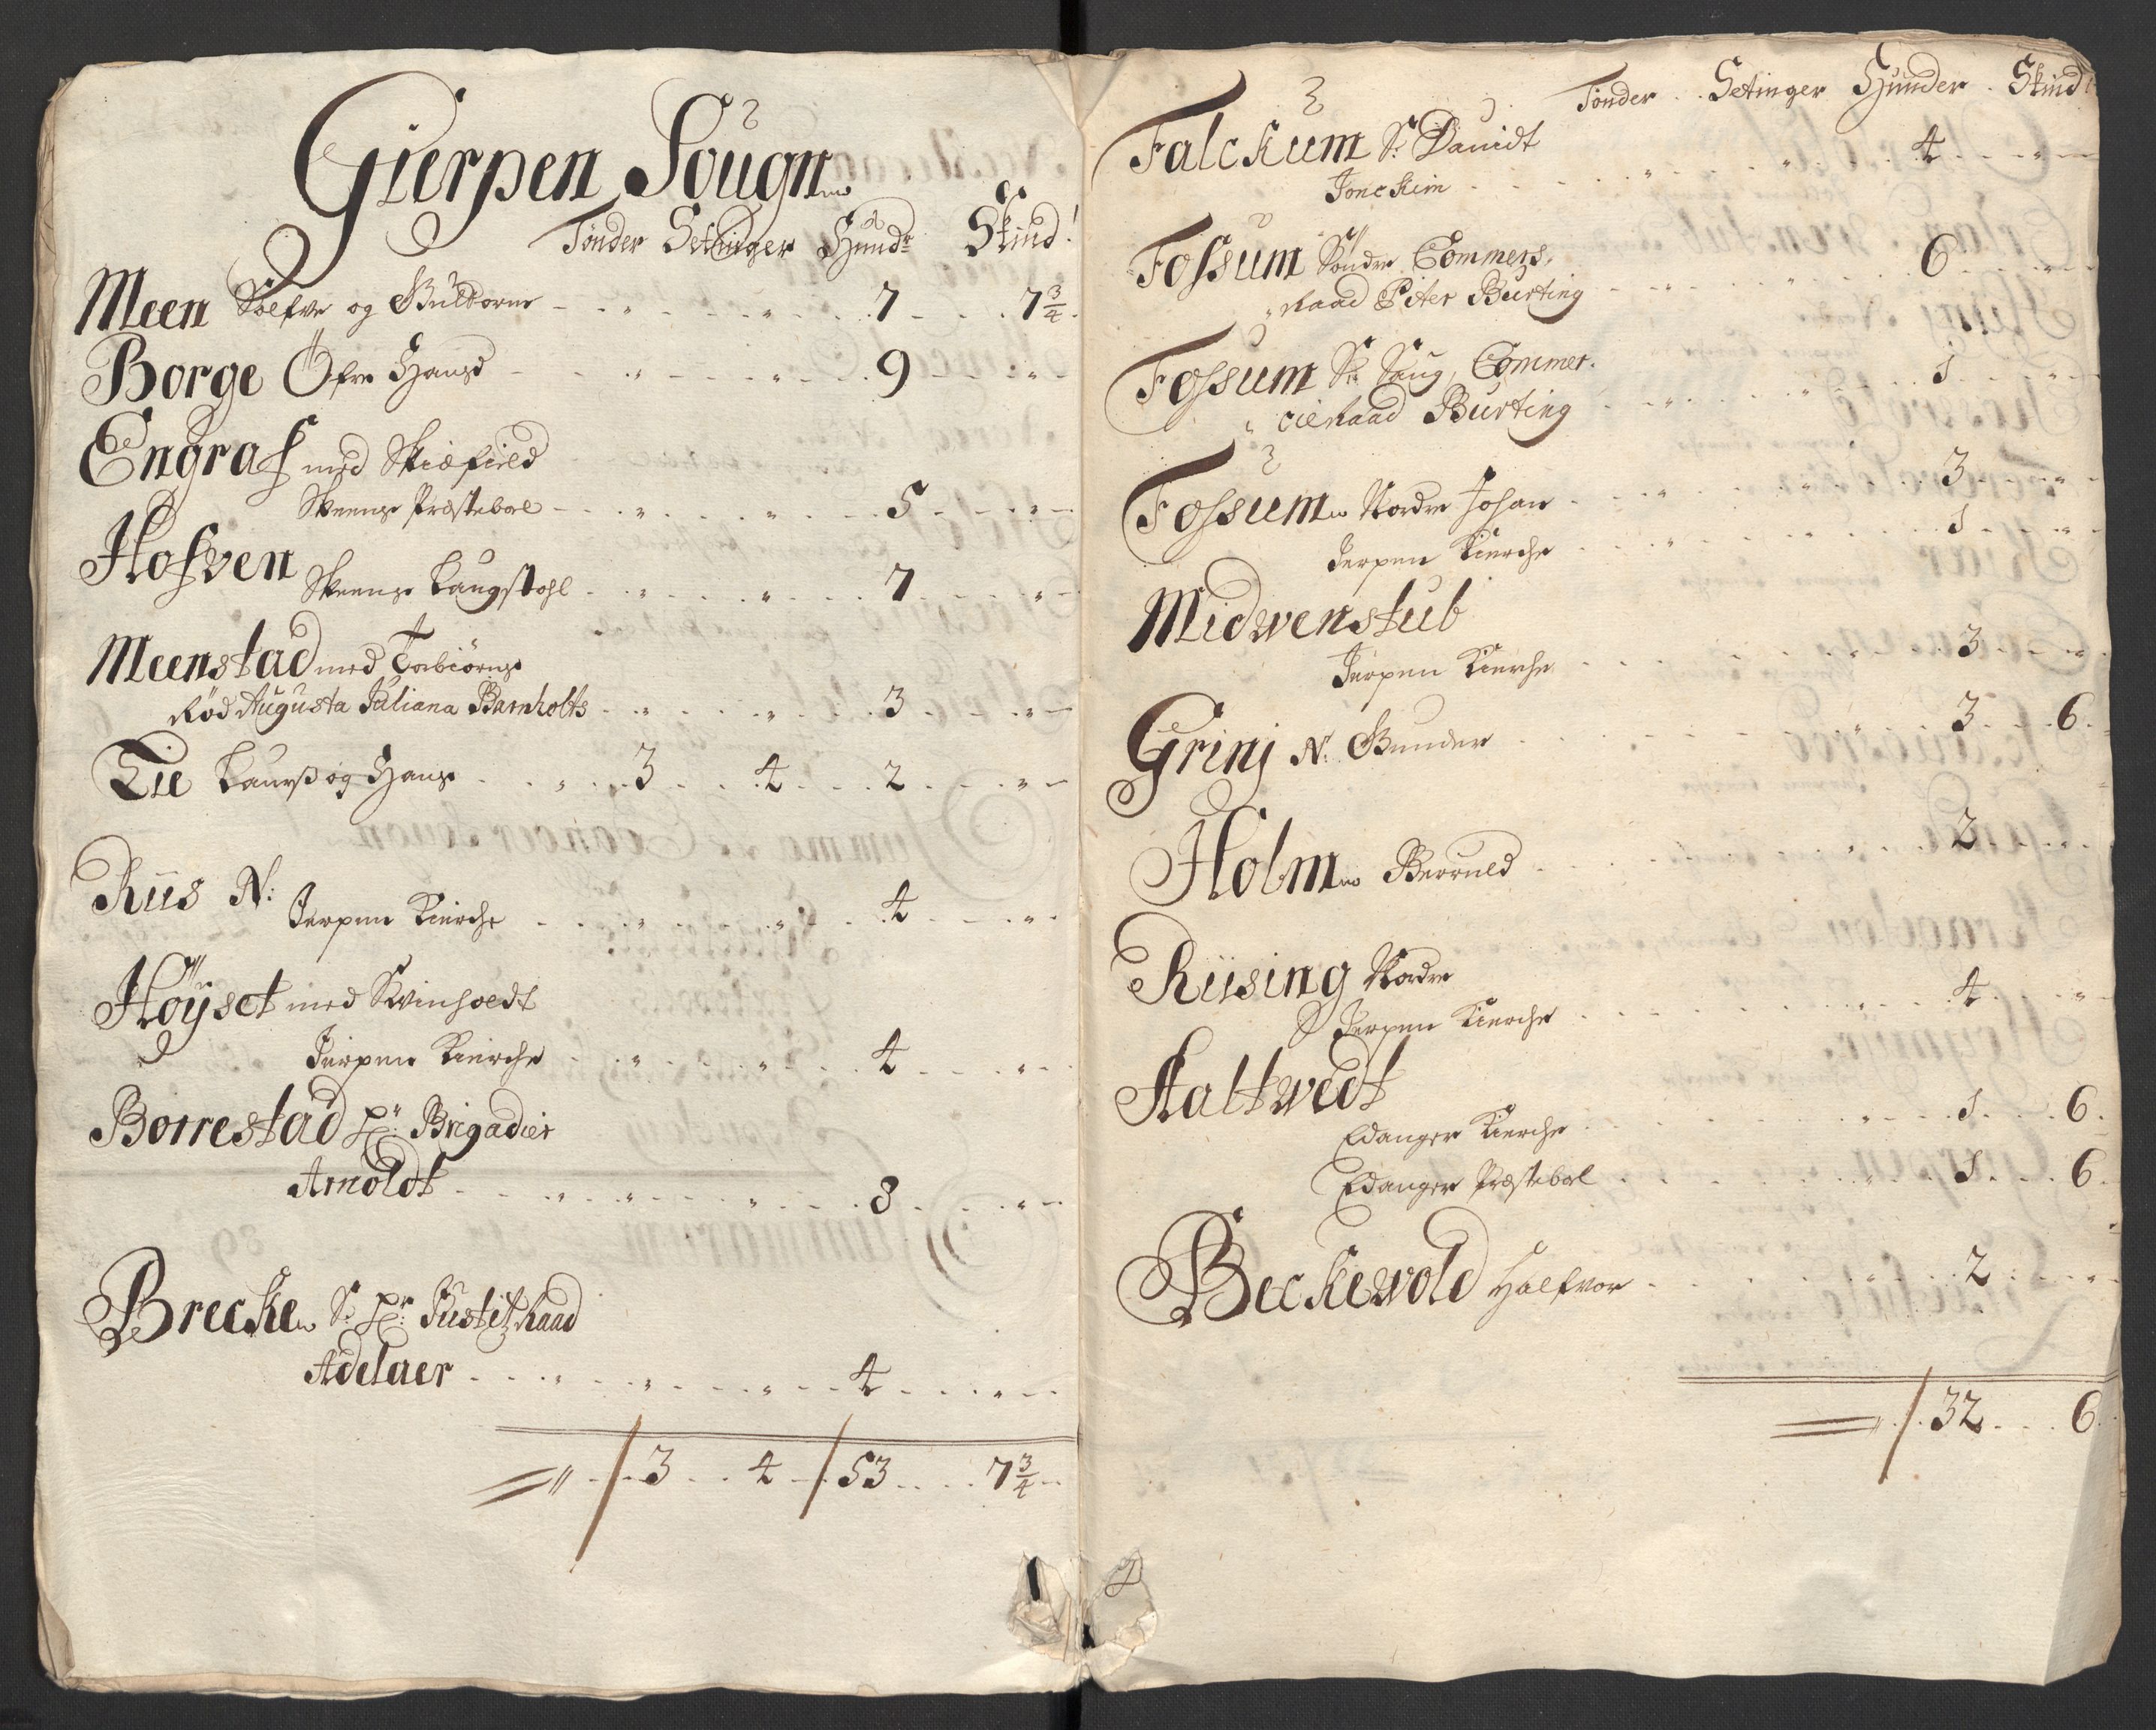 Gierpen Sougn
Tønder Setinger Hund: Skind!
Meen Sølfve og Guldorm - - „ - - „ - - 7 - - 7 3/4
Borge Øfre Hans - - „ - - „ - - 9 - - „
Engraf med Skiefield
Skeens Præstebol - - „ - - „ - - 5 - - „
Hofven Skeens Laugstohl - - „ - - „ - - 7 - - „
Meenstad med Torbiørns
Rød Augusta Juliana Barnholts - - „ - - „ - - 3 - - „
Lie Laurs og Hans - - „ - - 3 - - 4 - - 2 - - „
Riis N: Jerpen Kierche - - „ - - „ - - 4 - - „
Høyset med Kvinholdt
Jerpen Kierche - - „ - - „ - - 4 - - „
Borrestad hr: Brigadier
Arnoldt - - „ - - „ - - „ - - 8 - - „
Brecke S: hr: Justitz Raad
Adelaer - - „ - - „ - - „ - - 4 - - „
3 - - 4 - - 53 - - 7 3/4
Tønder Setinger Hunder Skind
Falckum S: Dauidt
Jonckim - - „ - - „ - - 4 - - „
Fossum Søndre Commerz.
Raad Piter Burting - - „ - - „ - - 6 - - „
Fossum S: Saug, Commer.
cie Raad Burting - - „ - - „ - - 1 - - „
Fossum Nordre Johan - - „ - - „ - - 3 - - „
Jerpen Kierche - - „ - - „ - - 1 - - „
Midwenstub
Jerpen Kierche - - „ - - 3 - - „
Grinj N: Gunder - - „ - - 3 - - 6
Holm Berruld - - „ - - 2 - - „
Riising Nordre
Jerpen Kierche - - „ - - 4 - - „
Kaltwedt
Edanger Kierche - - „ - - 1 - - 6
Edanger Præstebol - - „ - - 1 - - 6
Beckewold Halfvor - - „ - - 2 - - „
32 - - 6